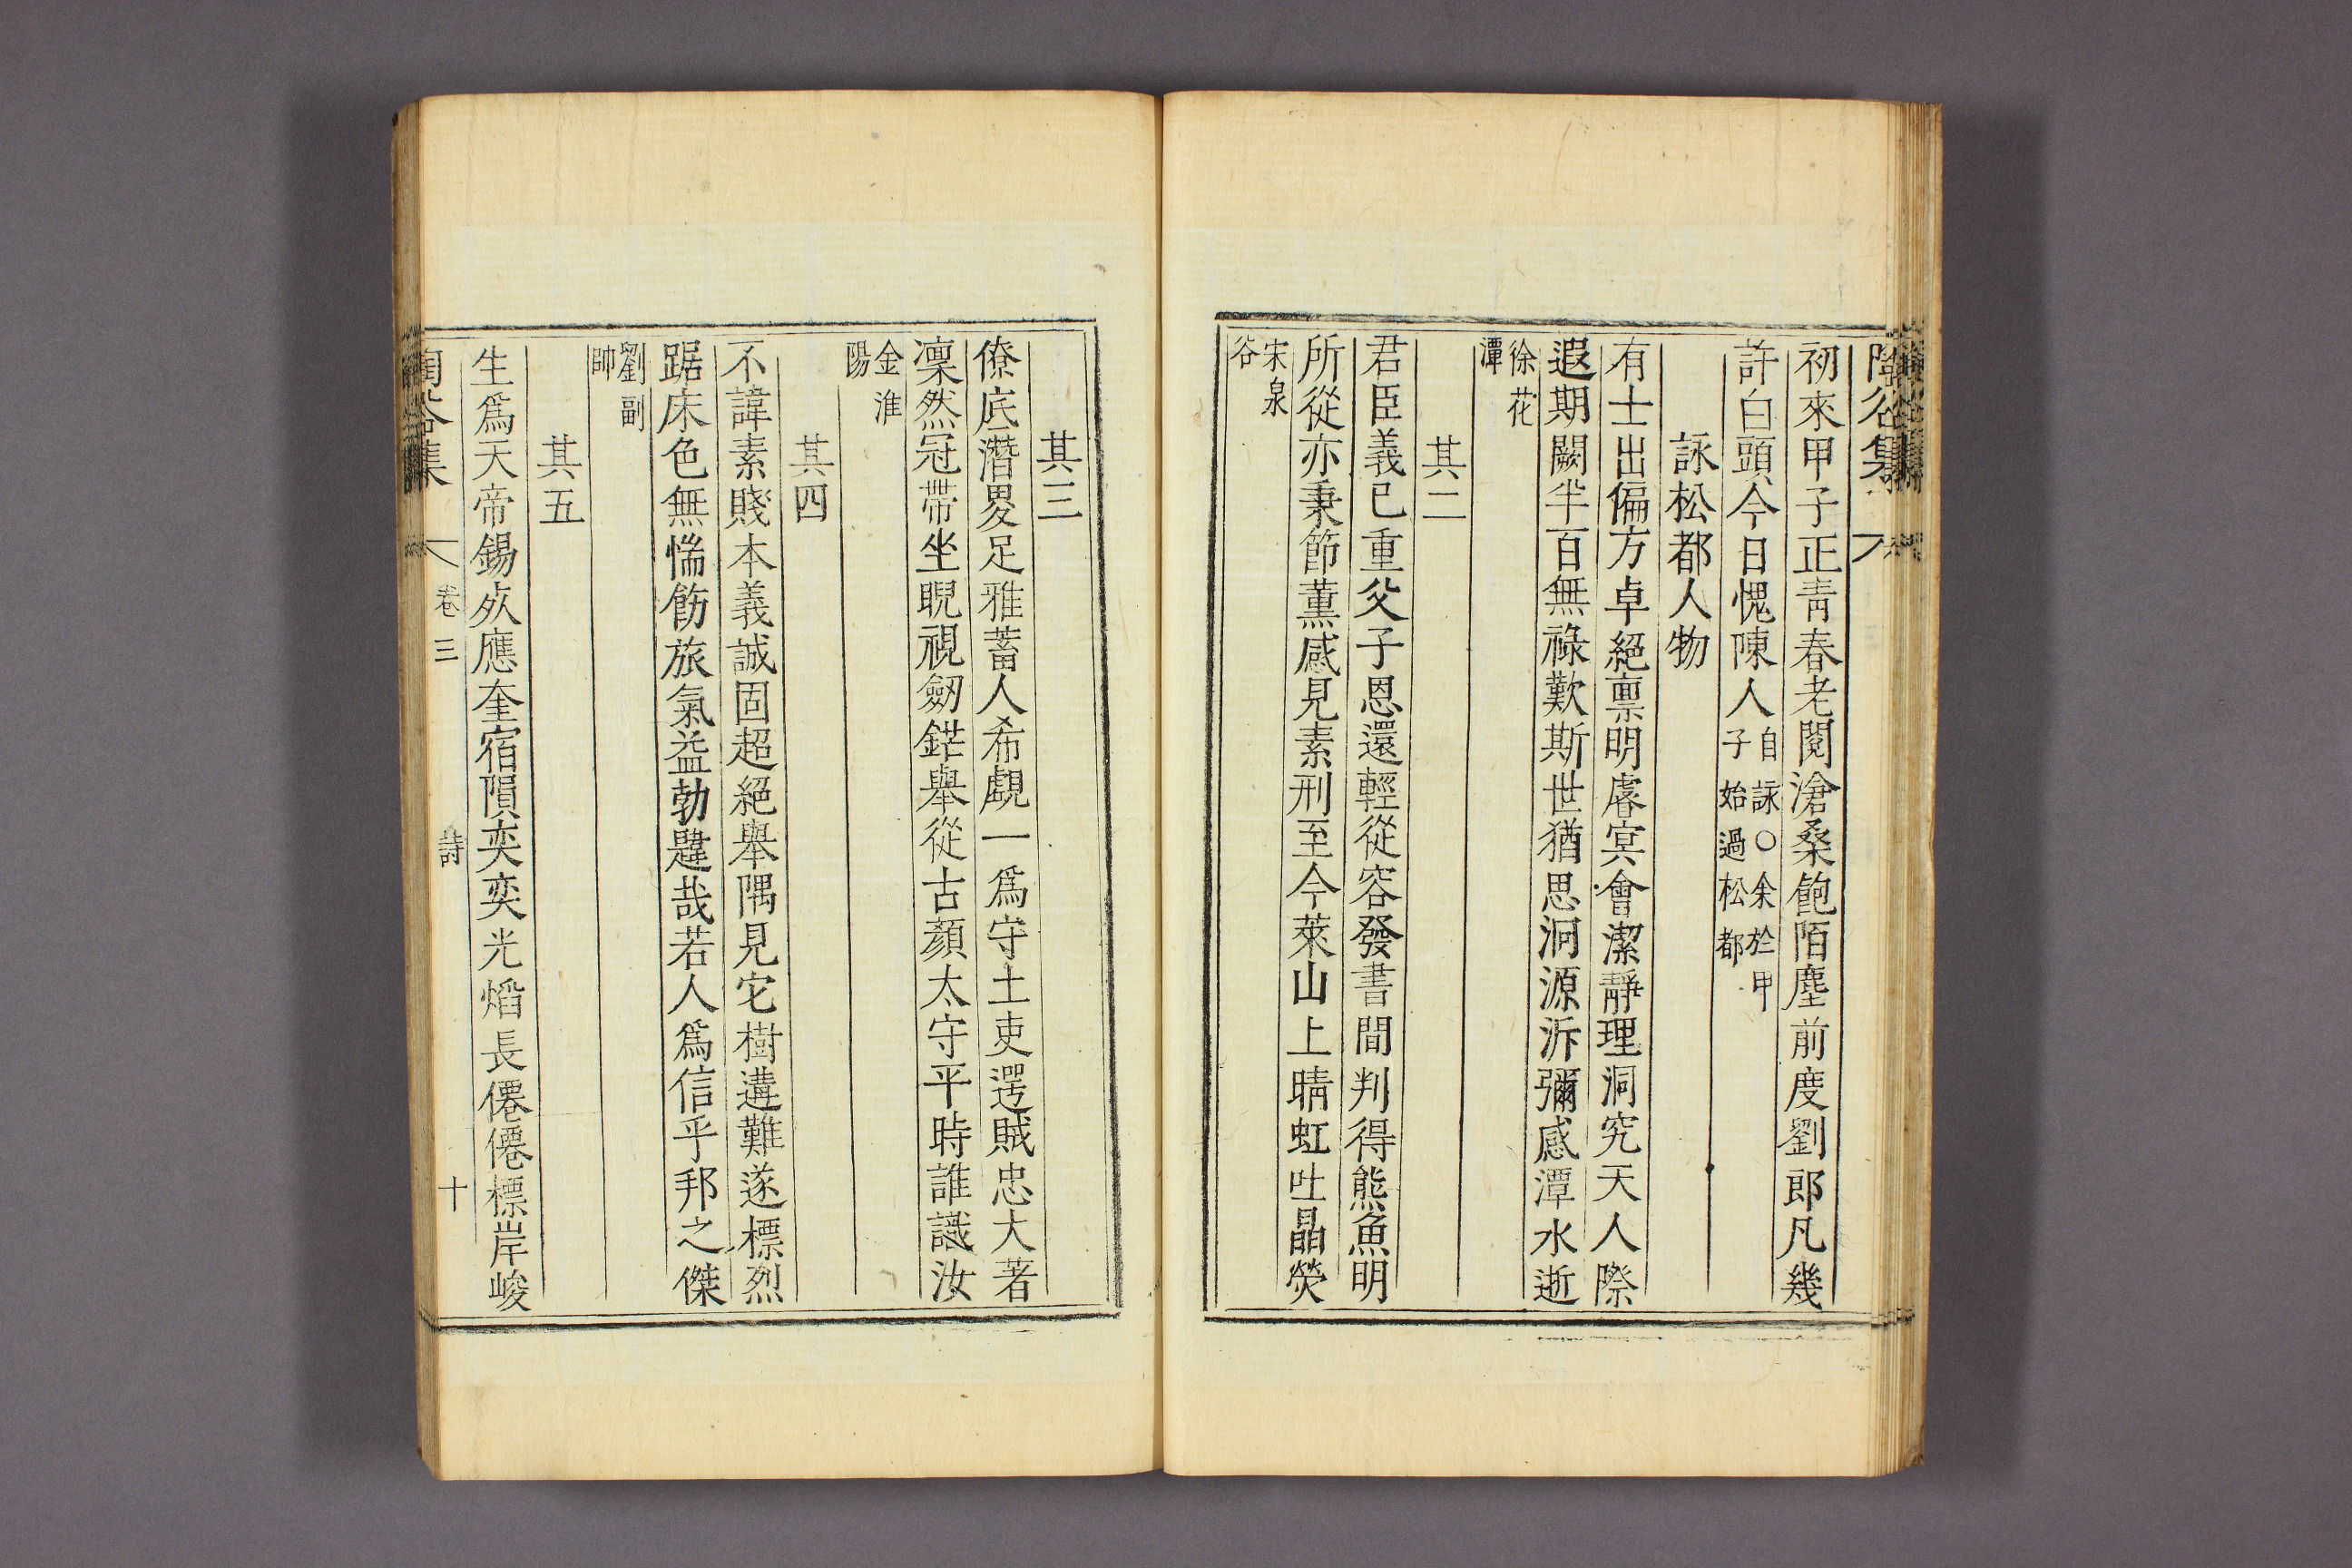 陶谷集
初來甲子正青春老閱滄桑飽陌塵前度劉郎凡幾
許白頭今日愧陳人自詠○余於甲子始過松都
詠松都人物
有士出偏方卓絕禀明睿冥會潔靜理洞究天人際
遐期闕半百無祿歎斯世猶思洄源泝彌感潭水逝
徐花潭
其二
君臣義已重父子恩還輕從容發書間判得熊魚明
所從亦秉節薰感見素刑至今萊山上晴虹吐晶熒
宋泉谷
其三
僚底潛畧足雅蓄人希覷一爲守土吏逻賊忠大著
凜然冠帶坐睨視劒鋩舉從古顏太守平時誰識汝
金淮陽
其四
不諱素賤本義誠固超絕舉隅見它樹遘難遂標烈
踞床色無惴飭旅氣益勃韙哉若人爲信乎邦之傑
劉副帥
其五
生爲天帝錫死應奎宿隕奕奕光焰長僊僊標岸峻
陶谷集 卷三 詩 十